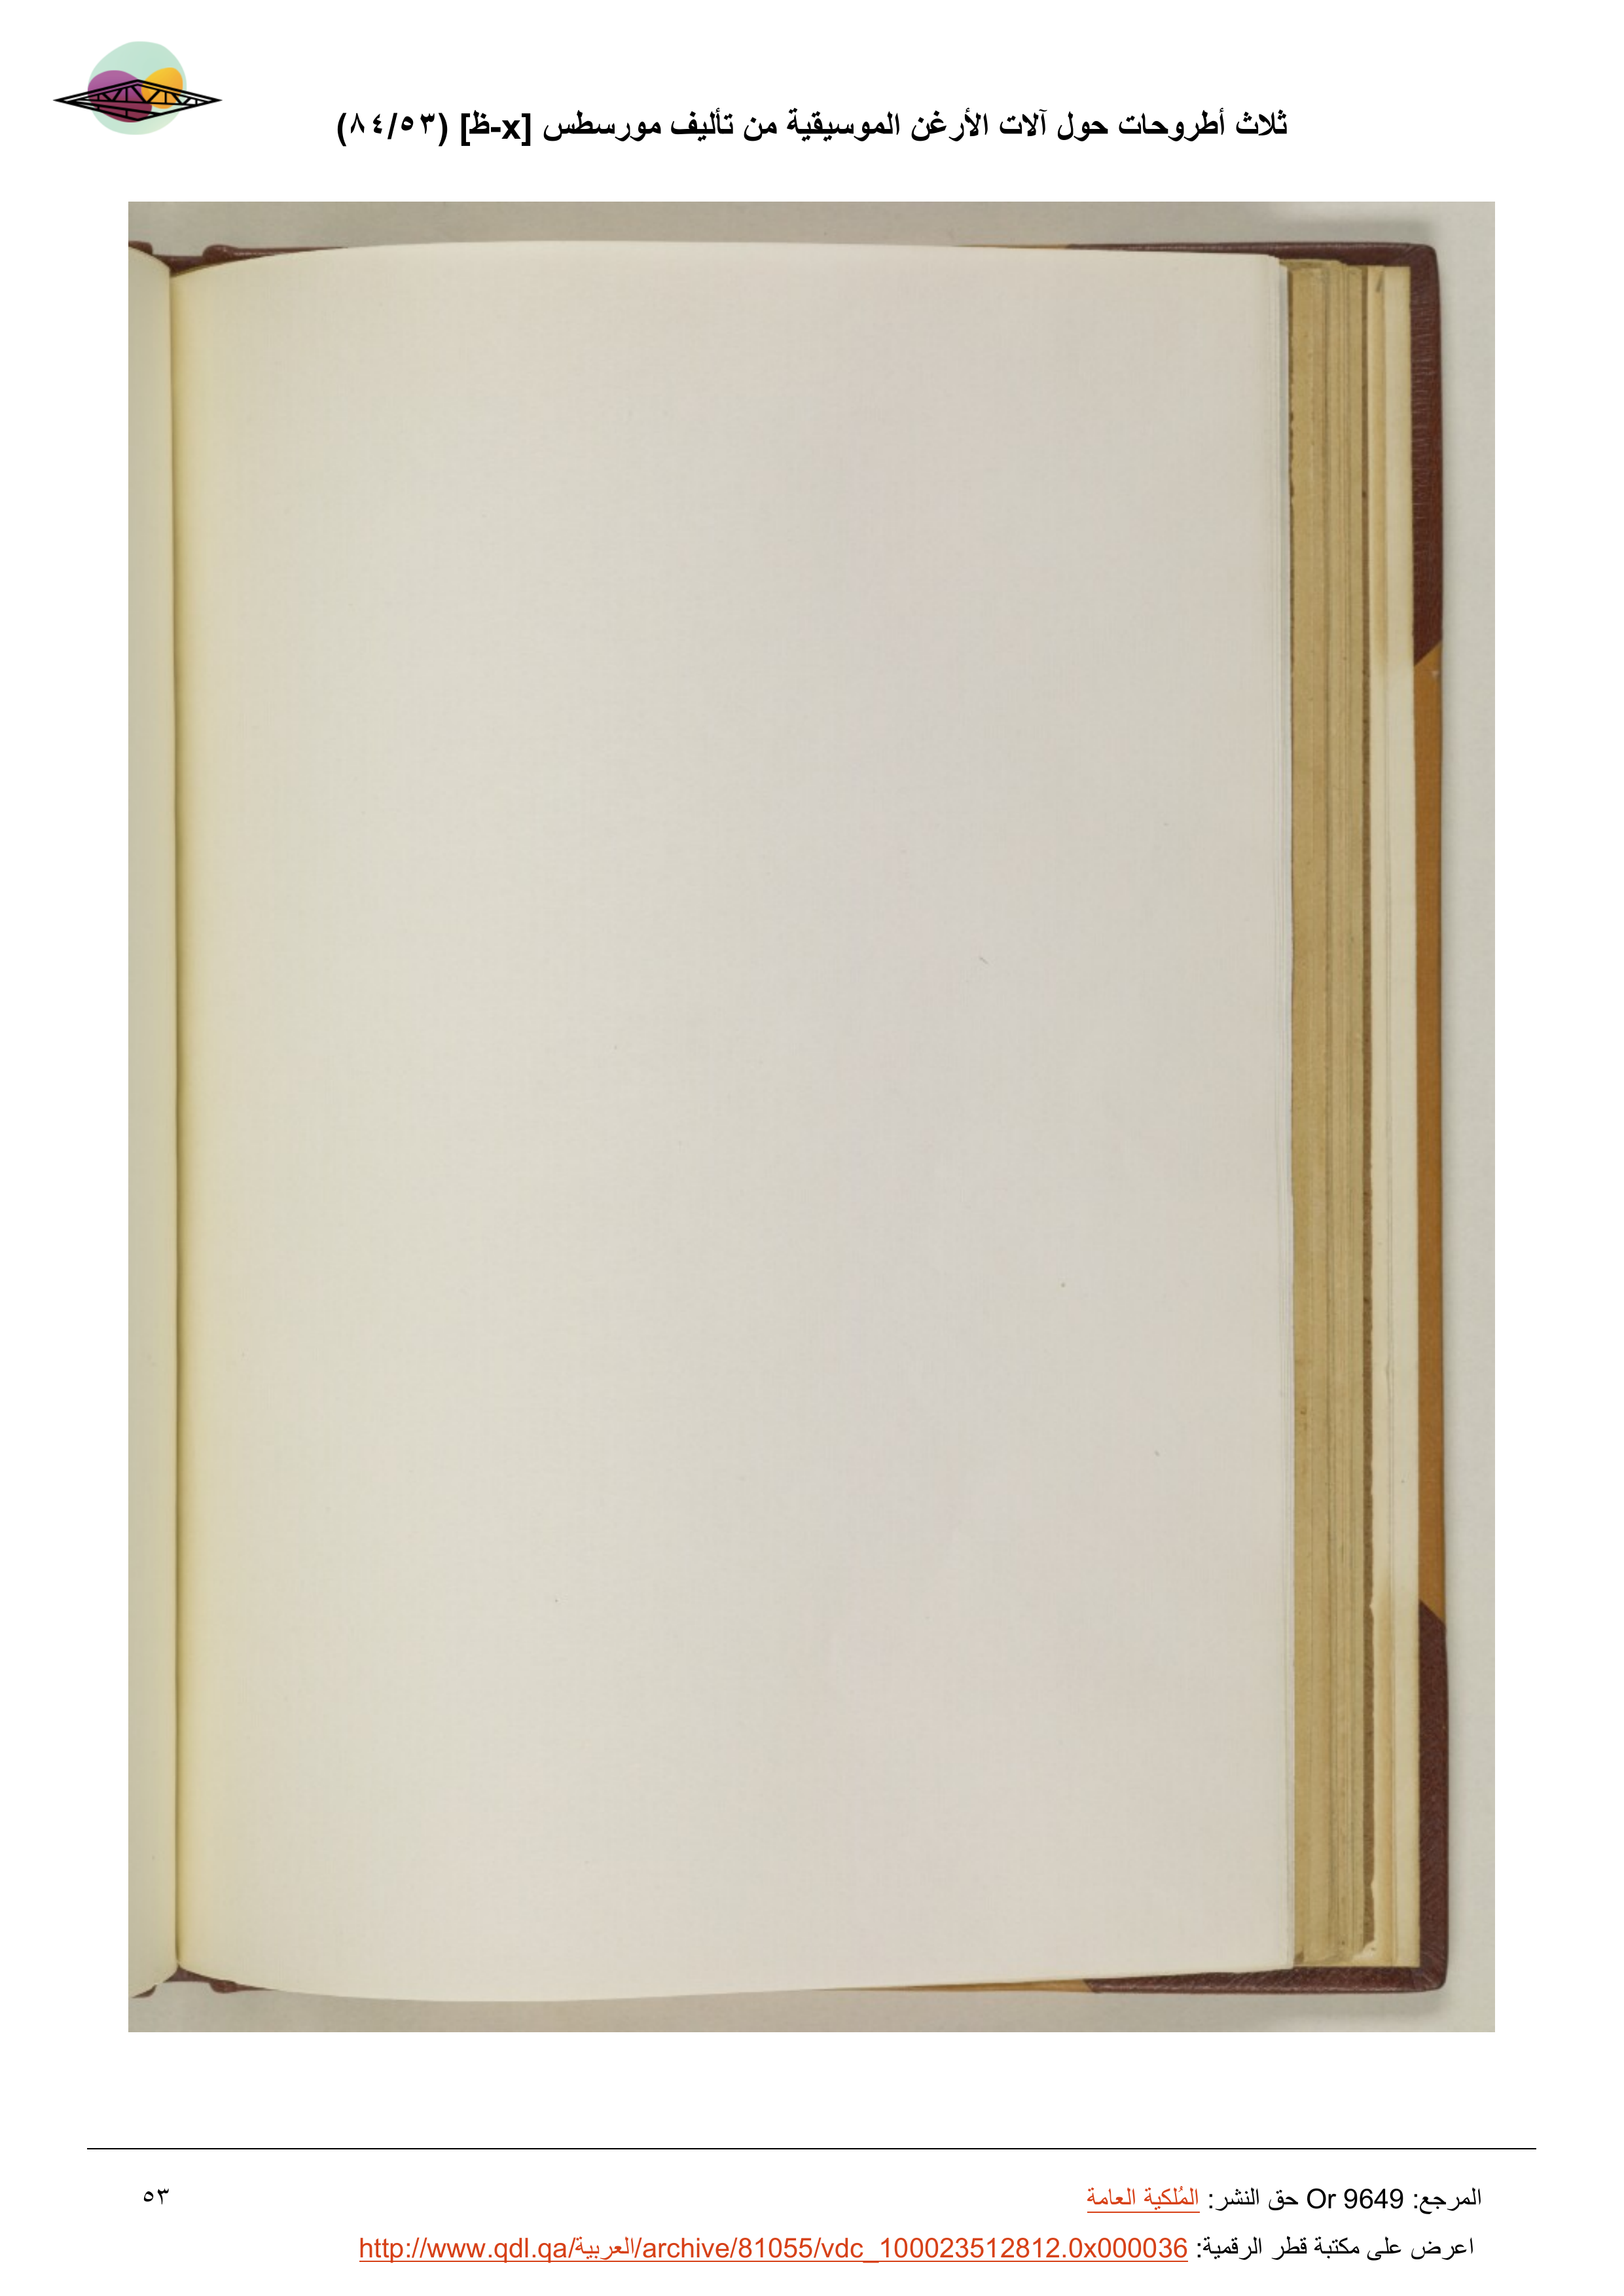 ثلاث أطروحات حول آلات الأرغن الموسيقية من تأليف مورسطس [x-ظ] (٥٣/٨٤)
المرجع: Or 9649 حق النشر: المُلكية العامة
٥٣
اعرض على مكتبة قطر الرقمية: http://www.qdl.qa/العربية/archive/81055/vdc_100023512812.0x000036